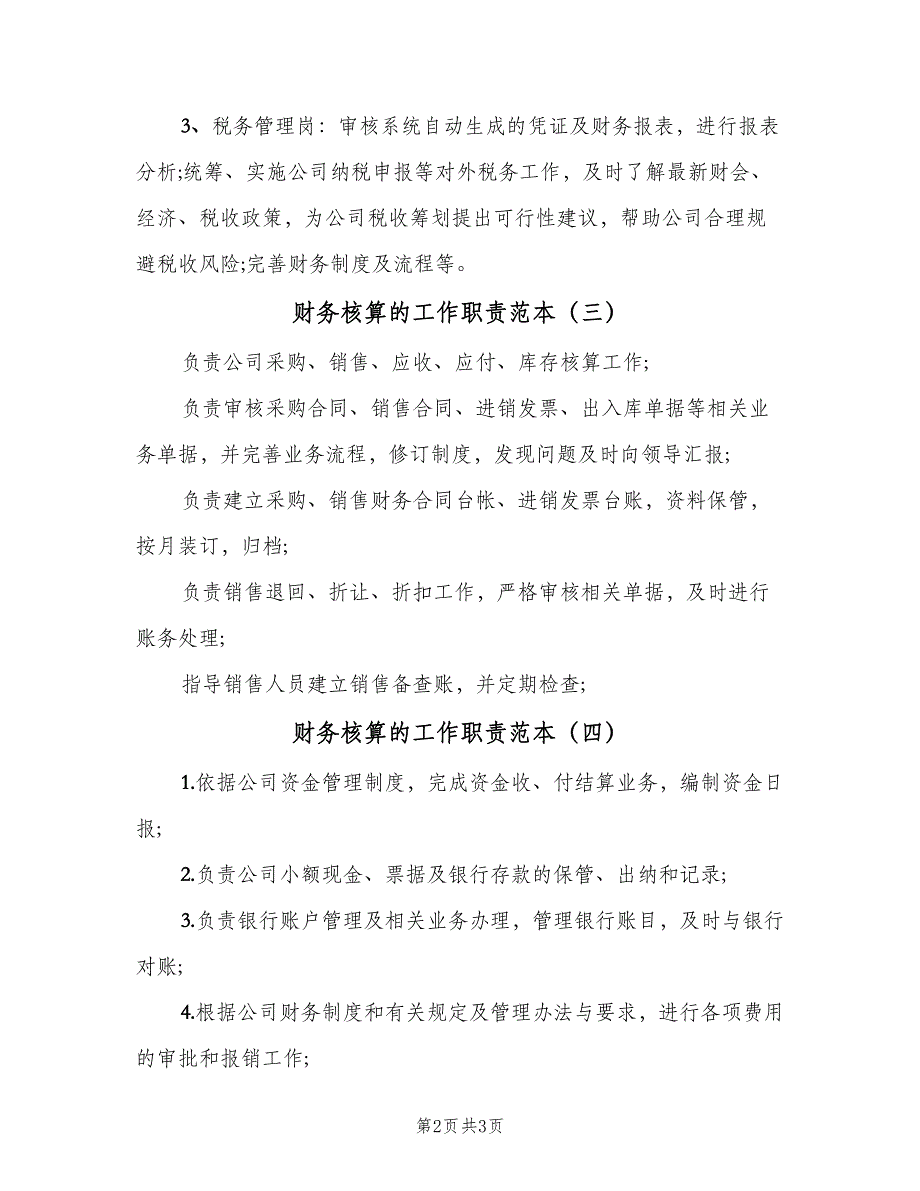 3、税务管理岗：审核系统自动生成的凭证及财务报表，进行报表
分析;统筹、实施公司纳税申报等对外税务工作，及时了解最新财会、
经济、税收政策，为公司税收筹划提出可行性建议，帮助公司合理规
避税收风险;完善财务制度及流程等。
财务核算的工作职责范本（三）
负责公司采购、销售、应收、应付、库存核算工作;
负责审核采购合同、销售合同、进销发票、出入库单据等相关业
务单据，并完善业务流程，修订制度，发现问题及时向领导汇报;
负责建立采购、销售财务合同台帐、进销发票台账，资料保管，
按月装订，归档;
负责销售退回、折让、折扣工作，严格审核相关单据，及时进行
账务处理;
指导销售人员建立销售备查账，并定期检查;
财务核算的工作职责范本（四）
1.依据公司资金管理制度，完成资金收、付结算业务，编制资金日
报;
2.负责公司小额现金、票据及银行存款的保管、出纳和记录;
3.负责银行账户管理及相关业务办理，管理银行账目，及时与银行
对账;
4.根据公司财务制度和有关规定及管理办法与要求，进行各项费用
的审批和报销工作;
第2页 共3页